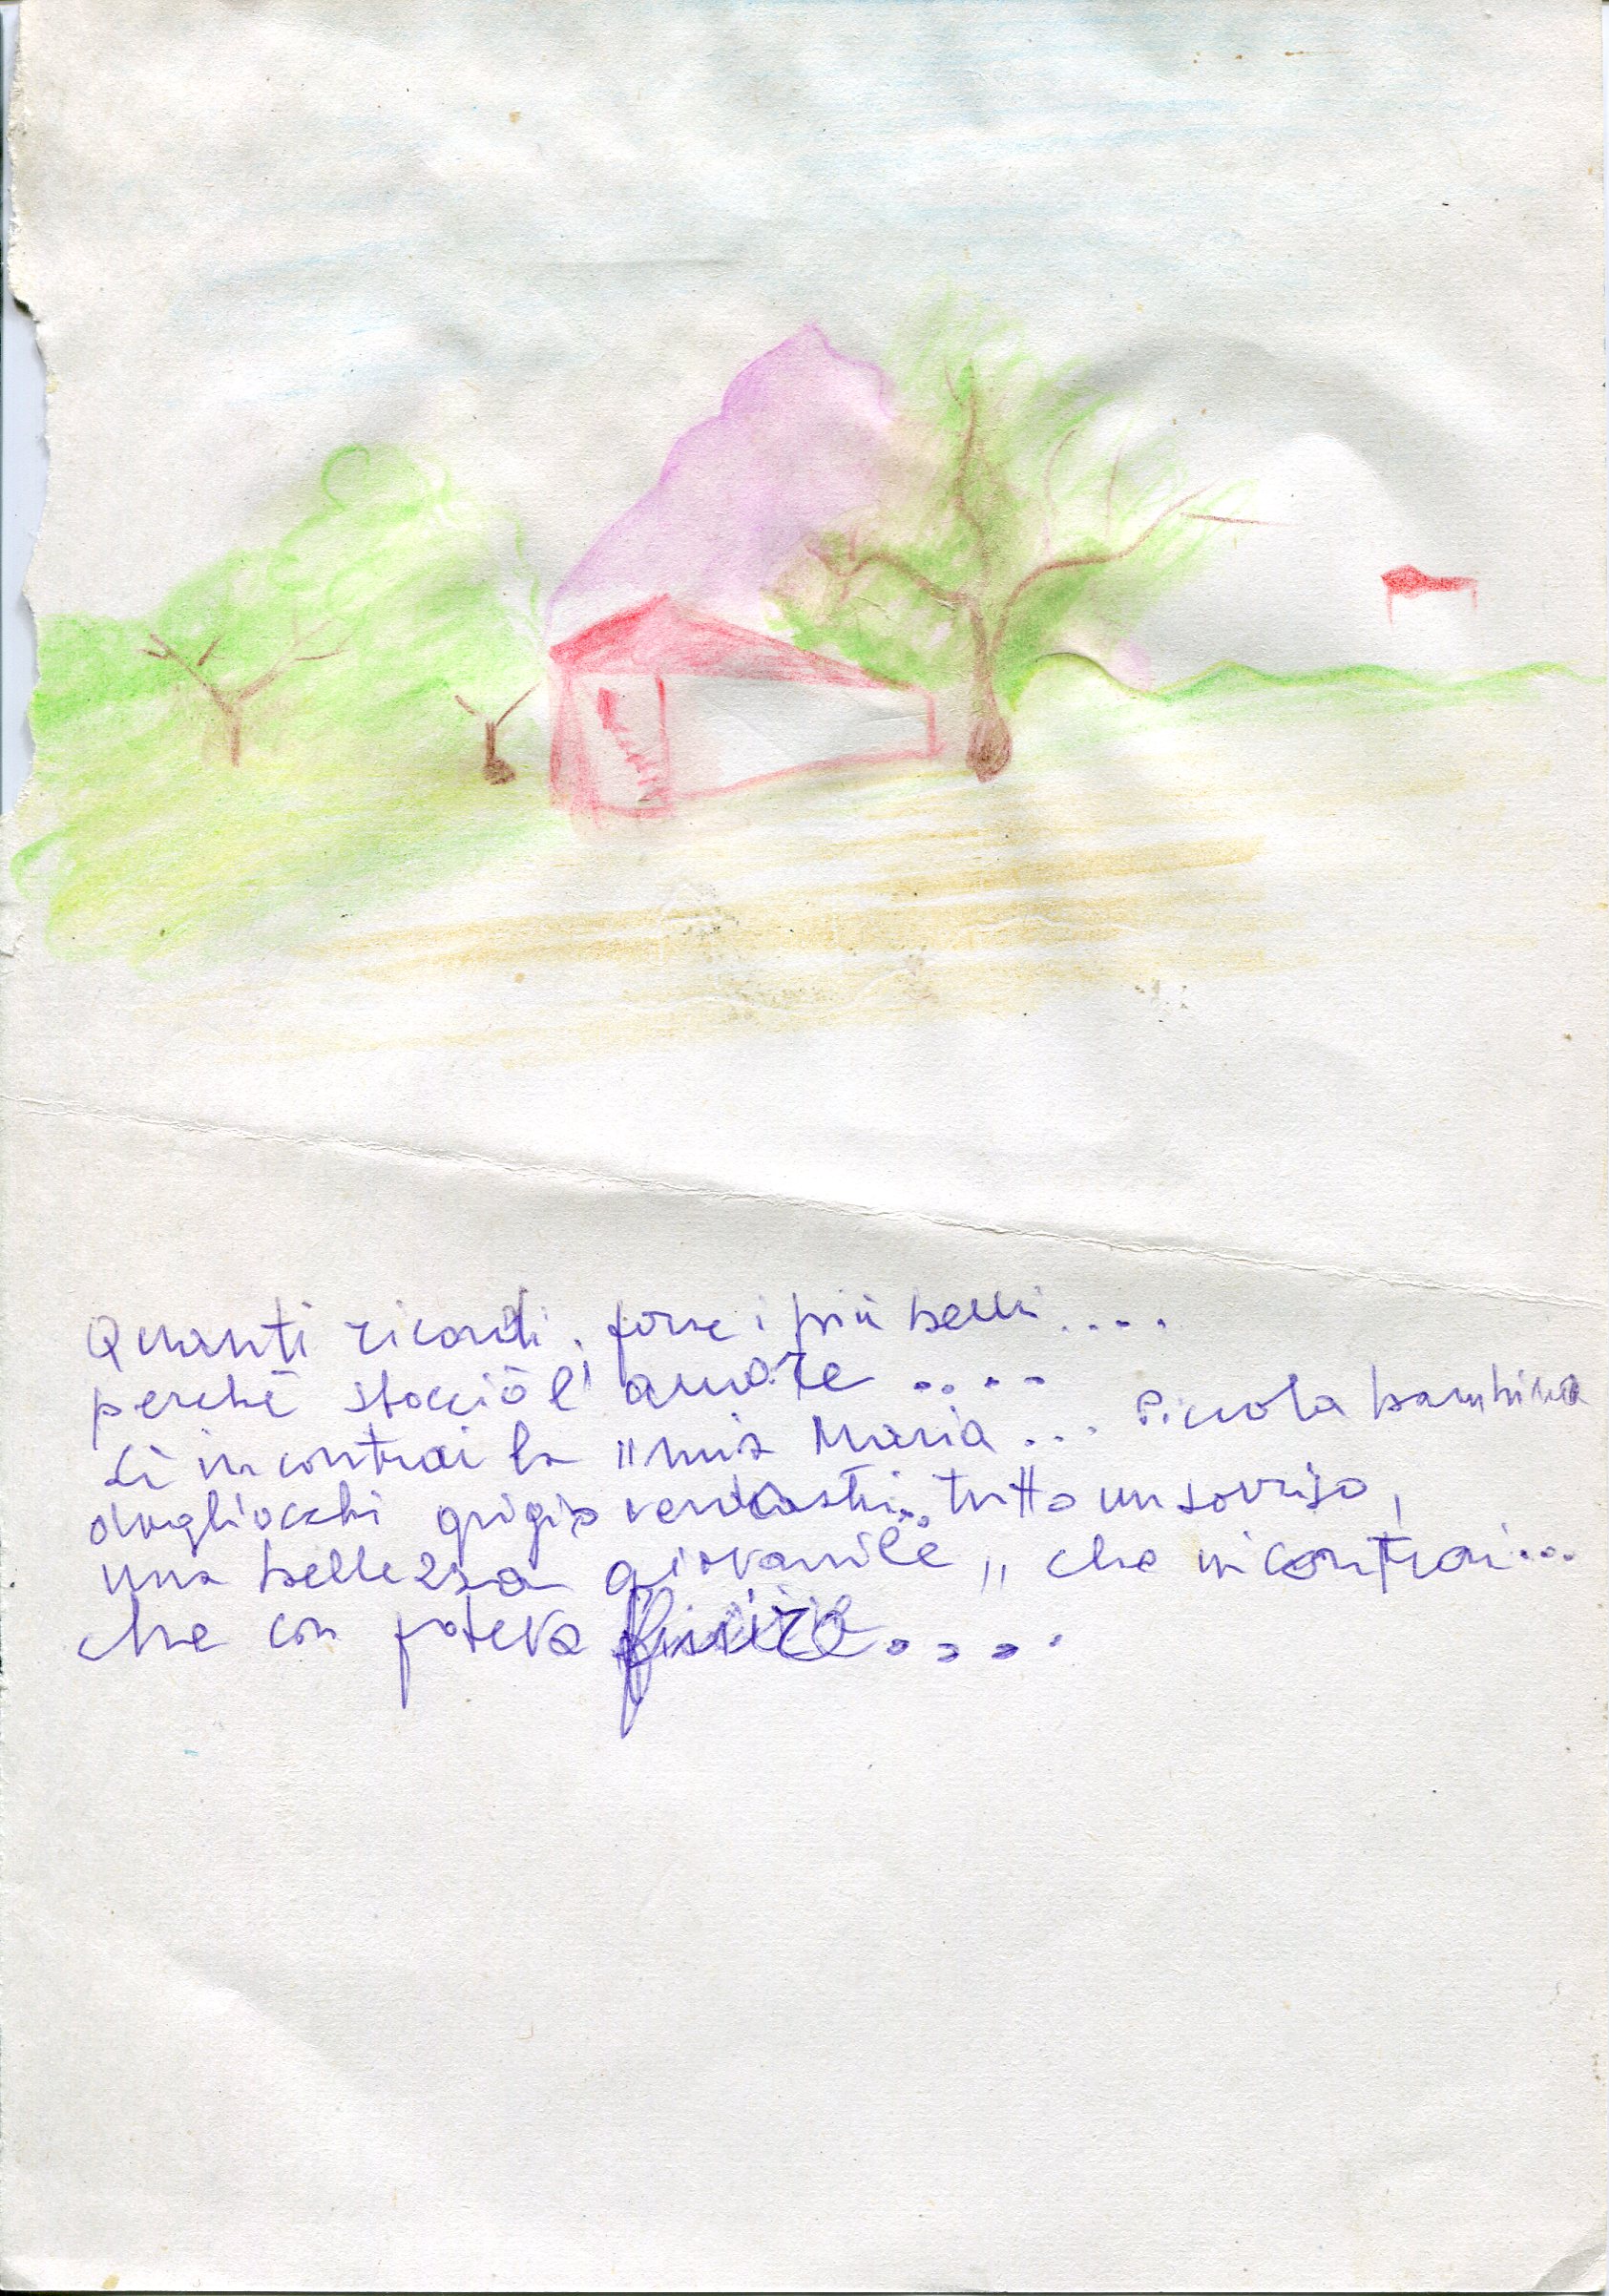 Quanti ricordi. forse i più belli....
perchè sbocciò l'amore ....
Lì incontrai la "mia Maria... Piccola bambina
dagliocchi grigio verdastri.. tutto un sorriso,
una bellezza giovanile,, che incontrai...
che con poteva finire....